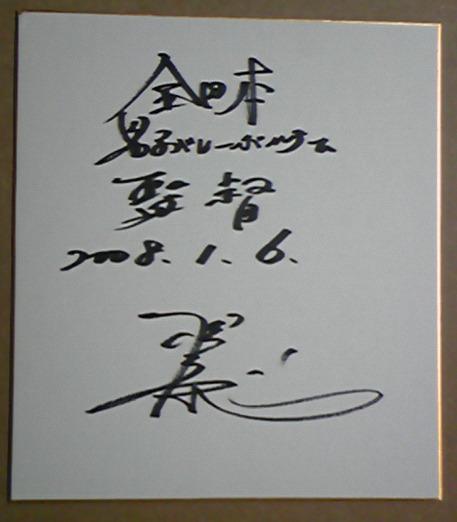 全日本
男子バレーボールチーム
監督
2008.1.6.